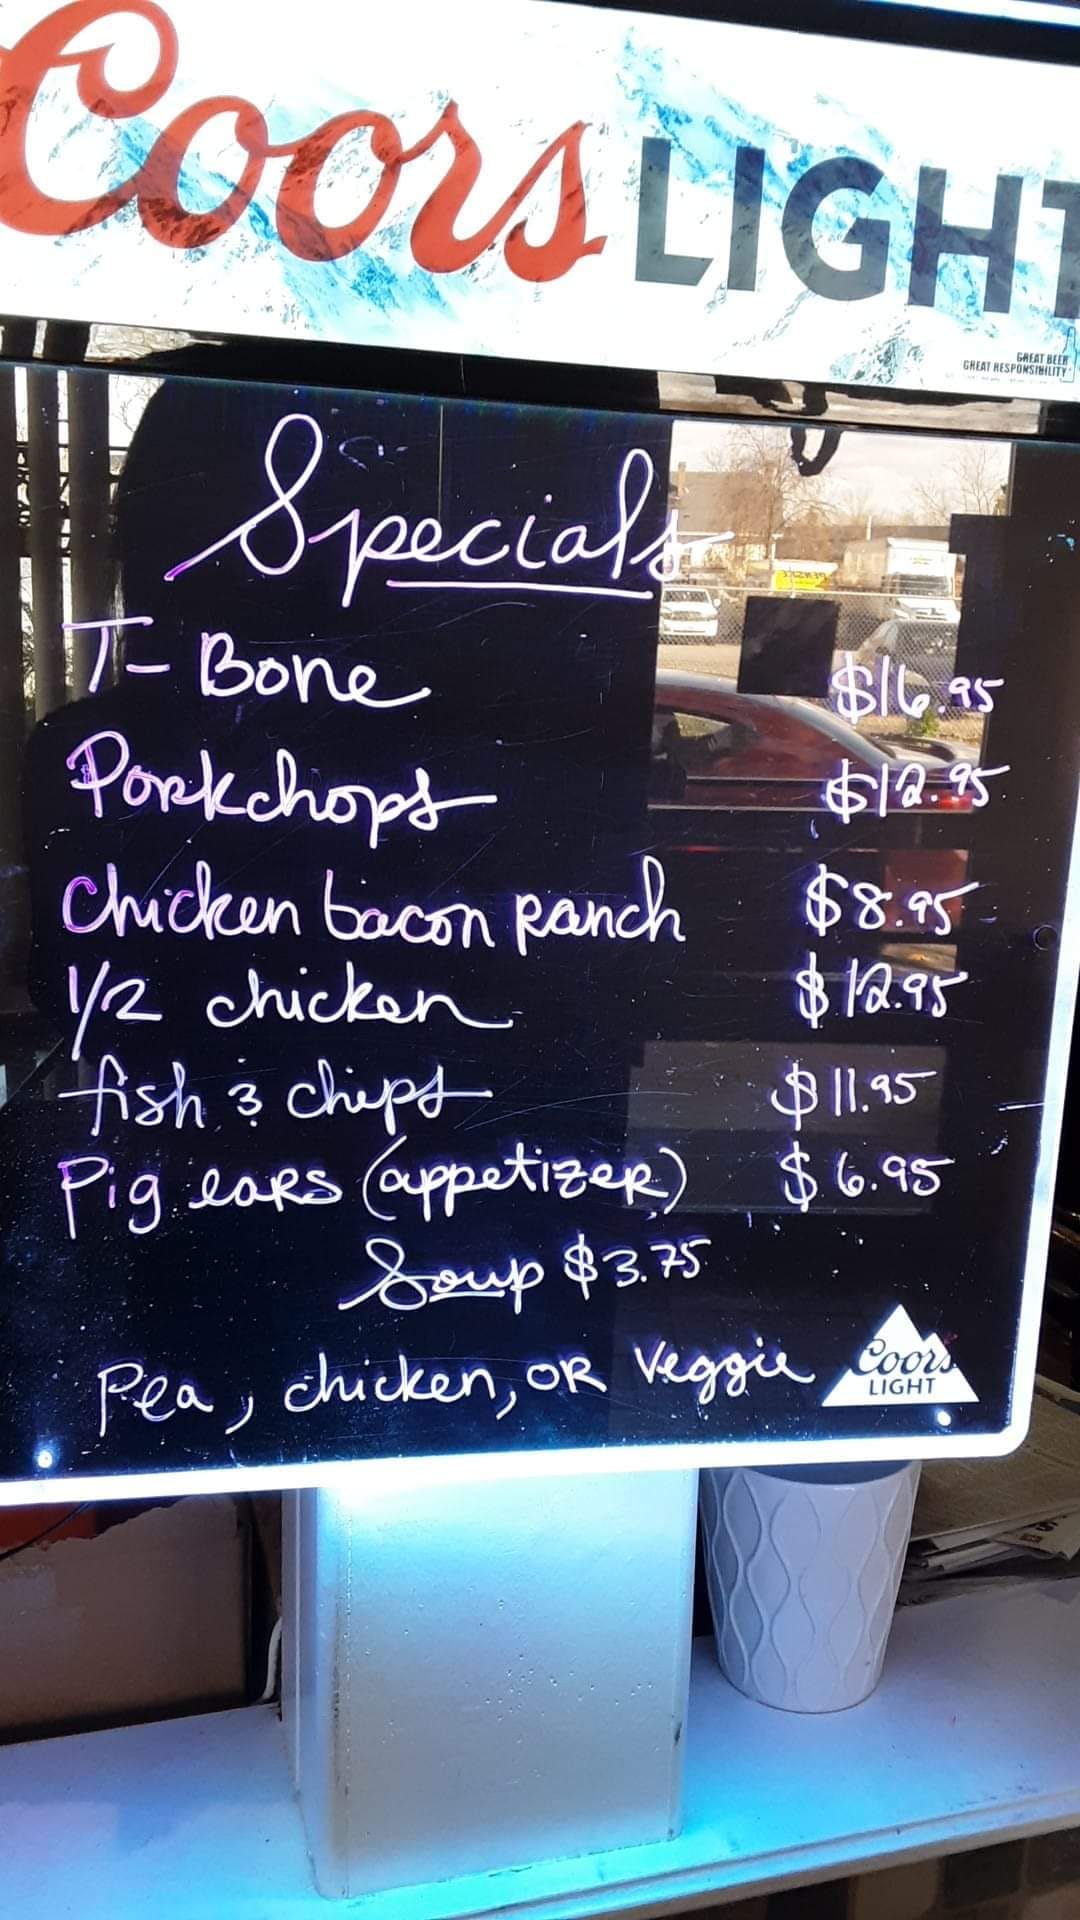 Coors LIGHT
GREAT BEER
GREAT RESPONSIBILITY
Specials
T-Bone $16.95
Porkchops $12.95
Chicken bacon Ranch $8.95
1/2 chicken $12.95
fish & chips $11.95
Pig ears (appetizer) $6.95
Soup $3.75
Pea, chicken, or Veggie
Coors
LIGHT